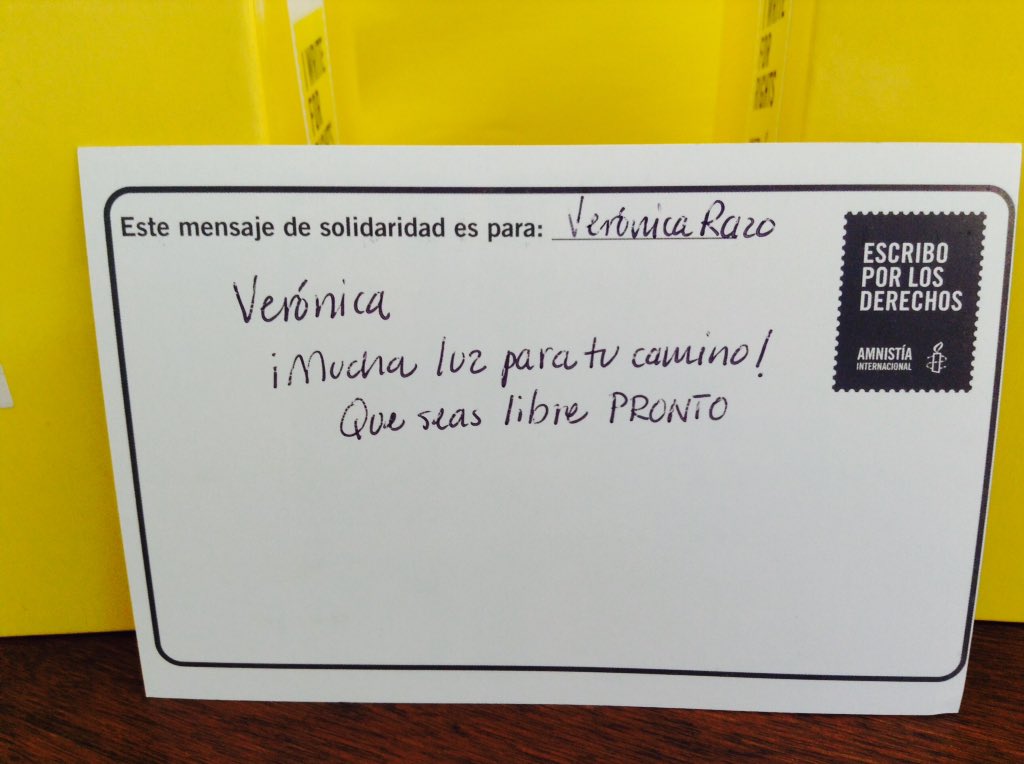 WRITE
FOR
RIGHTS
WRITE
FOR
RIGHTS
Este mensaje de solidaridad es para: Verónica Razo
ESCRIBO
POR LOS
DERECHOS
AMNISTÍA
INTERNACIONAL
Verónica
¡Mucha luz para tu camino!
Que seas libre PRONTO